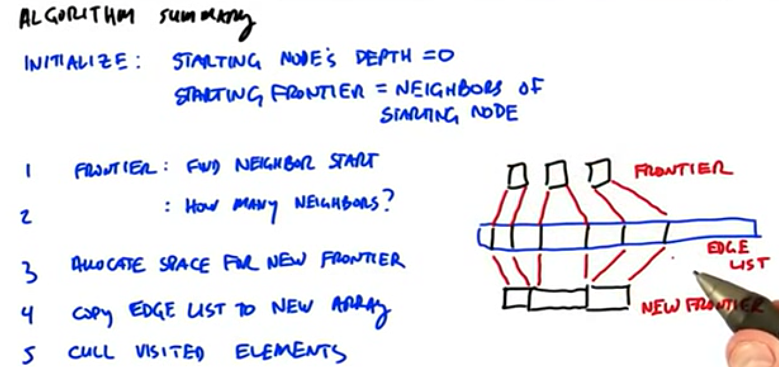 ALGORITHM SUMMARY
INITIALIZE: STARTING NODE'S DEPTH = 0
STARTING FRONTIER = NEIGHBORS OF
STARTING NODE
1 FRONTIER: FIND NEIGHBOR START
2 : HOW MANY NEIGHBORS?
3 ALLOCATE SPACE FOR NEW FRONTIER
4 COPY EDGE LIST TO NEW ARRAY
5 CULL VISITED ELEMENTS
FRONTIER
EDGE
LIST
NEW FRONTIER